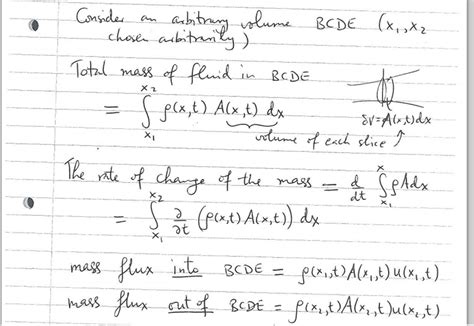 Consider an arbitrary volume BCDE (x₁, x₂
chosen arbitrarily)
Total mass of fluid in BCDE
= ∫_{x₁}^{x₂} ρ(x,t) A(x,t) dx
δV = A(x,t)dx
volume of each slice
The rate of change of the mass = d/dt ∫_{x₁}^{x₂} ρAdx
= ∫_{x₁}^{x₂} ∂/∂t (ρ(x,t) A(x,t)) dx
mass flux into BCDE = ρ(x₁,t)A(x₁,t)u(x₁,t)
mass flux out of BCDE = ρ(x₂,t)A(x₂,t)u(x₂,t)